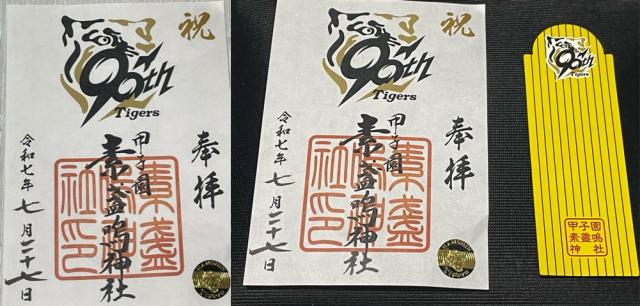 祝
90th
Tigers
奉拝
甲子園
素盞嗚神社
令和七年七月二十七日
素盞
嗚神
社印
祝
90th
Tigers
奉拝
甲子園
素盞嗚神社
令和七年七月二十七日
素盞
嗚神
社印
90th
Tigers
甲子園
素盞嗚
神社